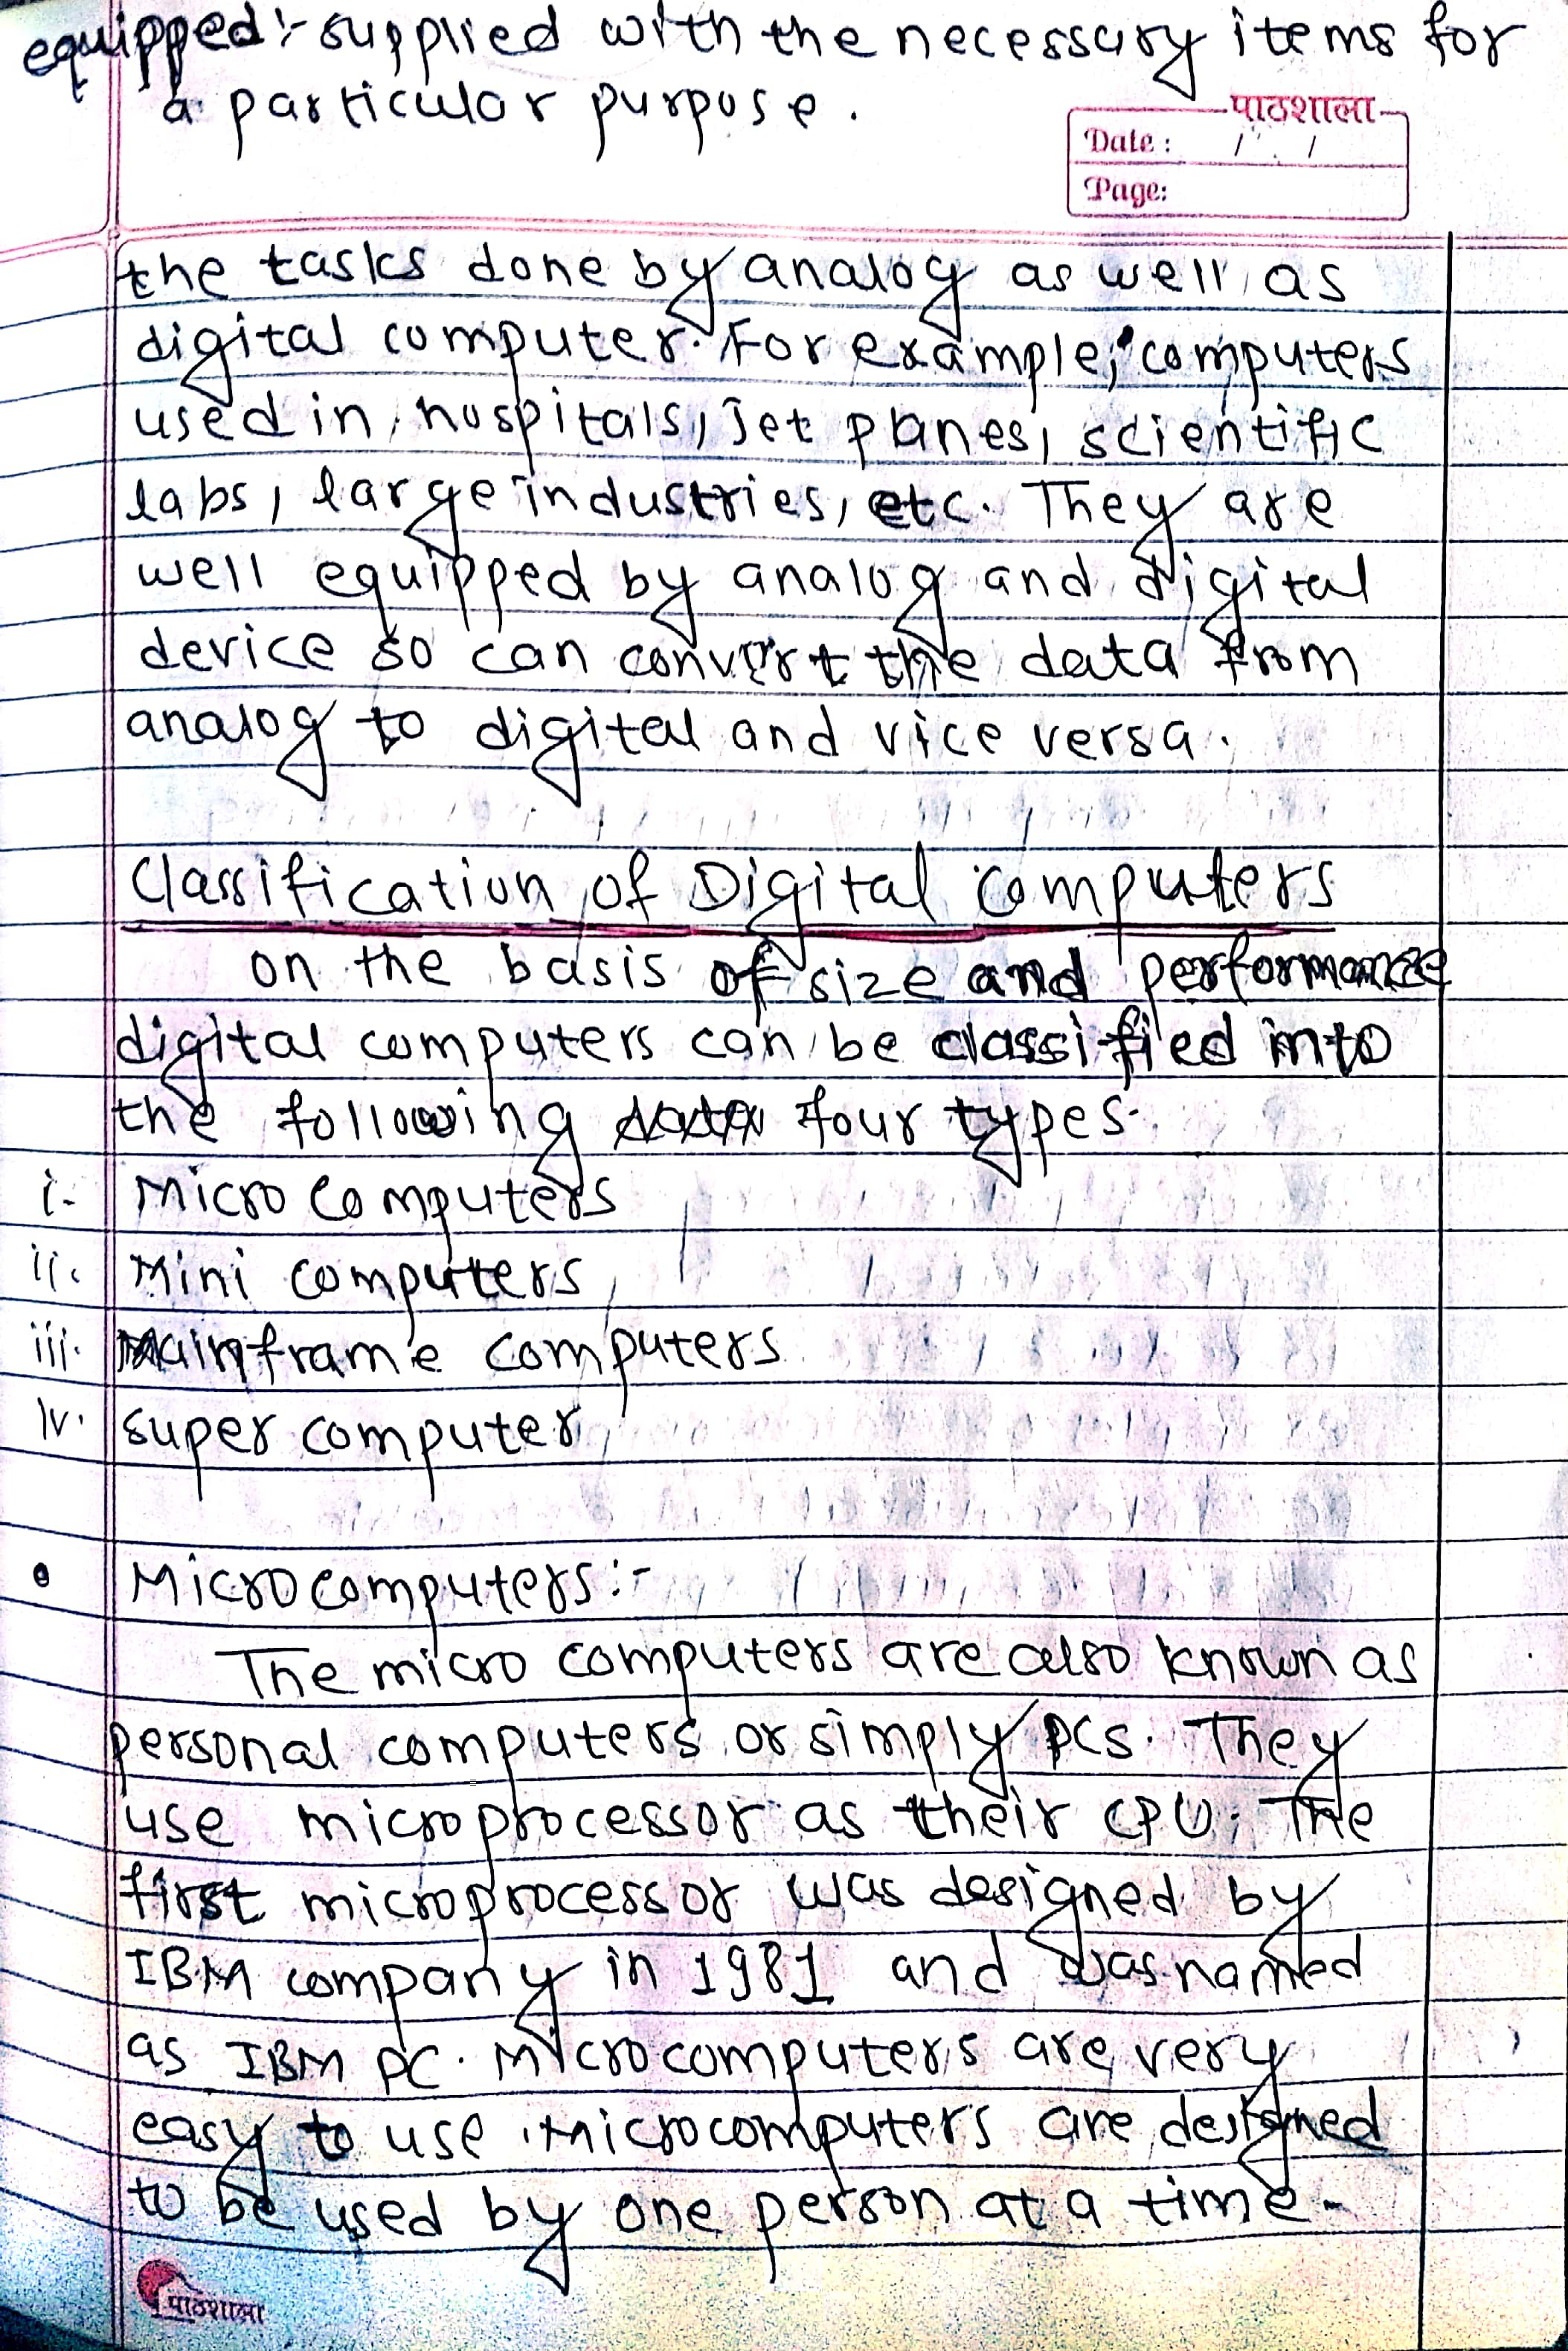 equipped:- supplied with the necessary items for
a particular purpose.
पाठशाला
Date : / /
Page:
the tasks done by analog as well as
digital computer. For example, computers
used in hospitals, Jet planes, scientific
labs, large industries, etc. They are
well equipped by analog and digital
device so can convert the data from
analog to digital and vice versa.
Classification of Digital Computers
on the basis of size and performance
digital computers can be classified into
the following four types.
i. Micro Computers
ii. Mini computers
iii. Mainframe computers
iv. super computer
• Microcomputers:-
The micro computers are also known as
personal computers or simply PCs. They
use microprocessor as their CPU. The
first microprocessor was designed by
IBM company in 1981 and was named
as IBM PC. Microcomputers are very
easy to use. Microcomputers are designed
to be used by one person at a time.
पाठशाला